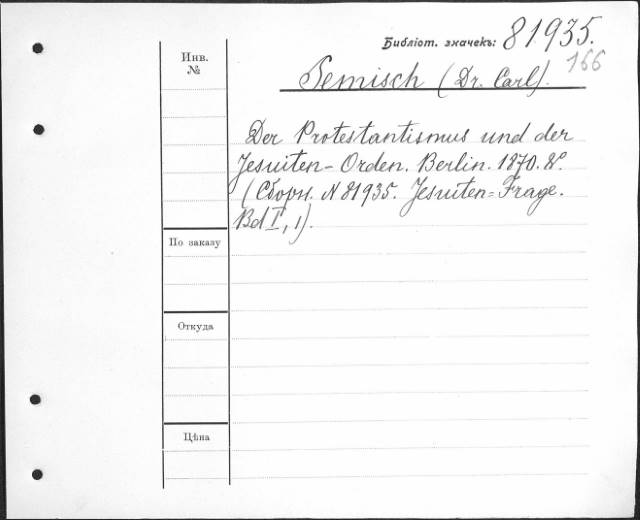 Библіот. значекъ: 81935.
166
Инв.
№
Semisch (Dr. Carl).
Der Protestantismus und der
Jesuiten-Orden. Berlin. 1870. 8°.
(Сборн. N 81935. Jesuiten-Frage.
Bd I, 1).
По заказу
Откуда
Цѣна